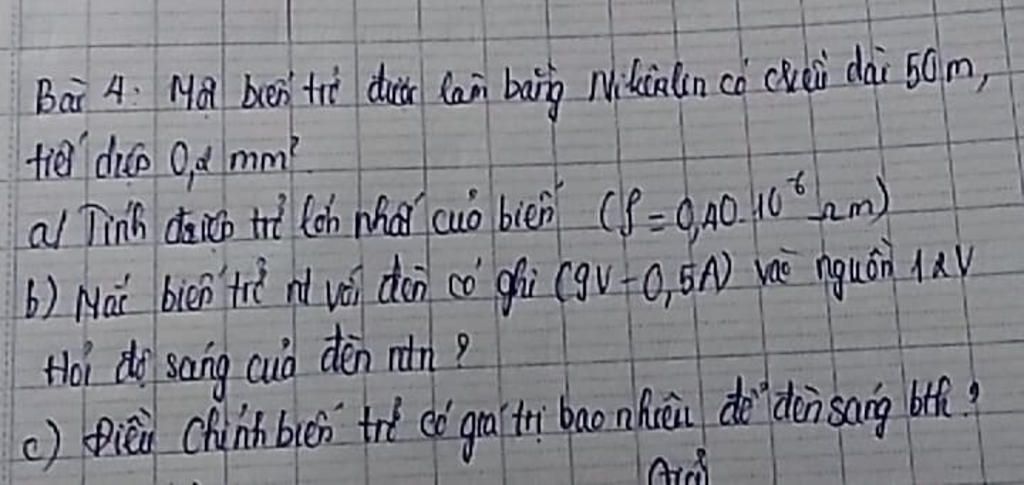 Bài 4: Một biến trở được làm bằng Nikêlin có chiều dài 50m,
tiết diện 0,2 mm².
a/ Tính điện trở lớn nhất của biến (ρ = 0,40.10⁻⁶ Ωm)
b) Mắc biến trở nt với đèn có ghi (9V - 0,5A) vào nguồn 12V
Hỏi độ sáng của đèn ntn ?
c) Điều chỉnh biến trở có giá trị bao nhiêu để đèn sáng bth ?